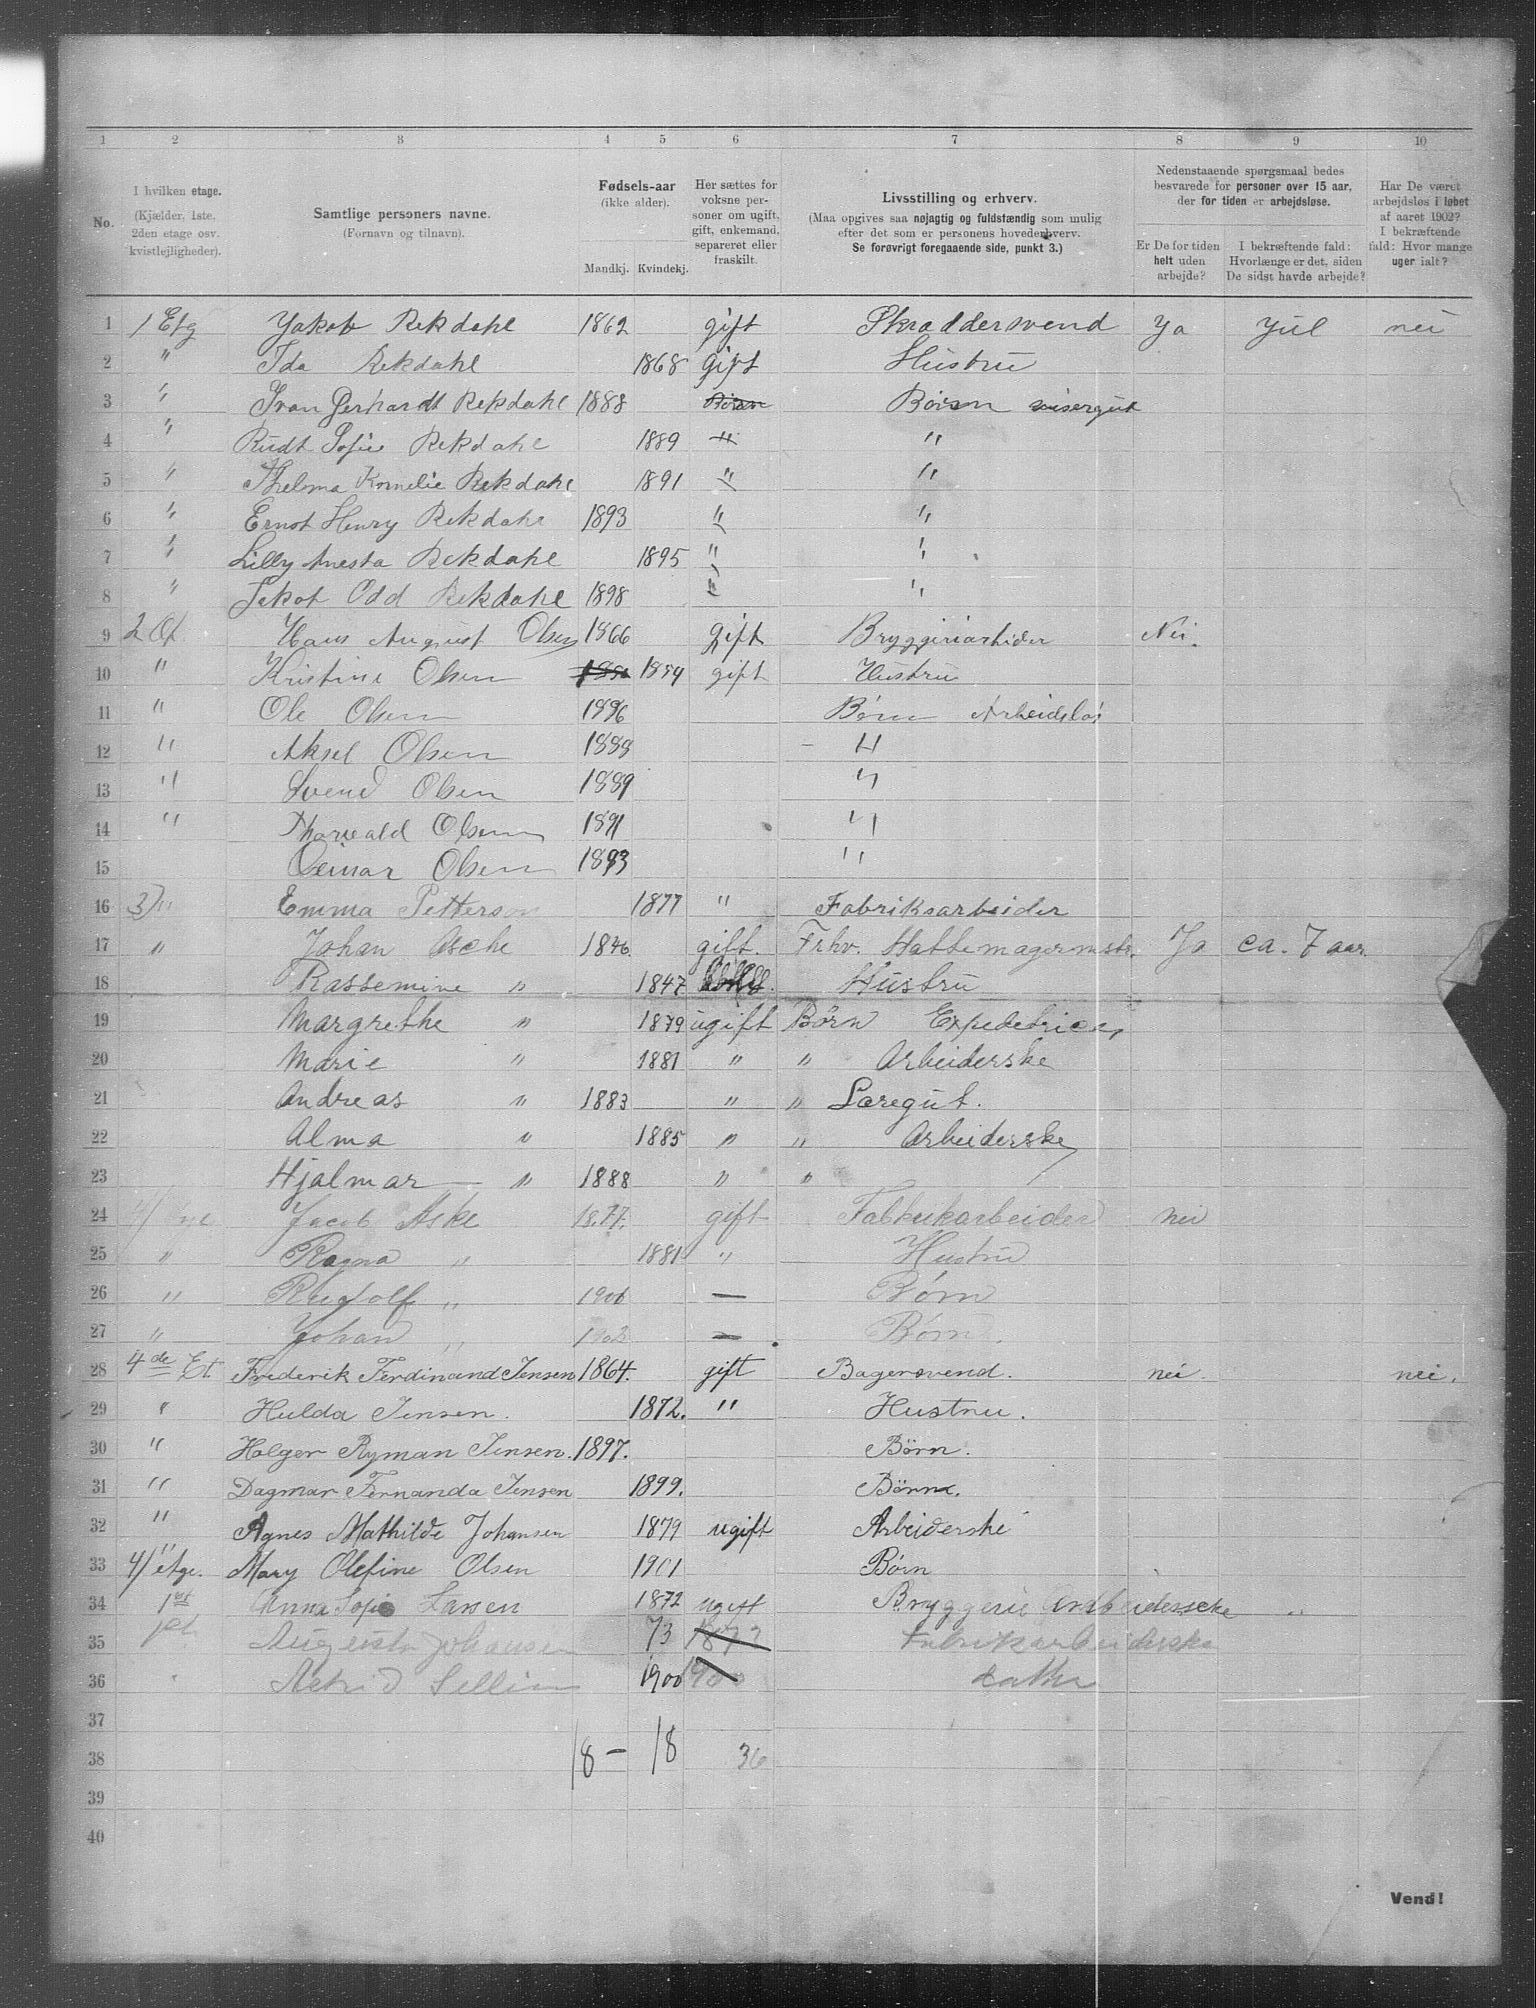 1 2 3 4 5 6 7 8 9 10
No.
I hvilken etage. (Kjælder, 1ste. 2den etage osv. kvistlejligheder).
Samtlige personers navne. (Fornavn og tilnavn).
Fødsels-aar (ikke alder). Mandkj. Kvindekj.
Her sættes for voksne personer om ugift, gift, enkemand, separeret eller fraskilt.
Livsstilling og erhverv. (Maa opgives saa nøjagtig og fuldstændig som mulig efter det som er personens hovederhverv. Se forøvrigt foregaaende side, punkt 3.)
Nedenstaaende spørgsmaal bedes besvarede for personer over 15 aar, der for tiden er arbejdsløse.
Er De for tiden helt uden arbejde?
I bekræftende fald: Hvorlænge er det, siden De sidst havde arbejde?
Har De været arbejdsløs i løbet af aaret 1902? I bekræftende fald: Hvor mange uger ialt?
1 1 Etg Jakob Rekdahl 1862 gift Skræddersvend Ja Jul nei
2 " Ida Rekdahl 1868 gift Hustru
3 " Ivan Gerhardt Rekdahl 1888 Børn Børn visergut
4 " Rudt Sofie Rekdahl 1889 " "
5 " Thelma Kornelie Rekdahl 1891 " "
6 " Ernst Henry Rekdahl 1893 " "
7 " Lilly Anesta Rekdahl 1895 " "
8 " Jakob Odd Rekdahl 1898 " "
9 2 Et. Hans August Olsen 1866 gift Bryggeriarbider Nei.
10 " Kristine Olsen 1859 gift Hustru
11 " Ole Olsen 1896 Børn Arbeidsløs
12 " Aksel Olsen 1888 "
13 " Svend Olsen 1889 "
14 " Thorvald Olsen 1891 "
15 Oeinar Olsen 1893 "
16 3) " Emma Petterson 1877 " Fabriksarbeider
17 " Johan Asche 1846 gift. Frhv. Hattemagermstr. Ja ca. 7 aar.
18 Rassemine " 1847 Hustru
19 Margrethe " 1879 ugift Børn Expedetrice
20 Marie " 1881 " " Arbeiderske
21 Andreas " 1883 " " Læregut.
22 Alma " 1885 " " Arbeiderske
23 Hjalmar " 1888 " "
24 Jacob Aske 1877. gift Fabrikarbeider nei
25 " Ragna " 1881 " Hustru
26 " Rudolf " 1900 — Børn
27 " Johan " 1902 — Børn.
28 4de Et Frederik Ferdinand Jensen 1864. gift Bagersvend. nei. nei.
29 " Hulda Jensen. 1872. " Hustru.
30 " Holger Ryman Jensen. 1897. Børn.
31 " Dagmar Fernanda Jensen 1899. Børn.
32 " Agnes Mathilde Johansen 1879 ugift Arbeiderske
33 4/ etge. Mary Olefine Olsen 1901 Børn
34 1st Anna Sofie Larsen 1872 ugift Bryggerie Arbeiderscke "
35 1st Augusta Johansen 73 1873 Fabrikarbeiderske
36 " Astrid Sellin 1900 1900 datter
37
38 18 – 18 36
39
40
Vend!